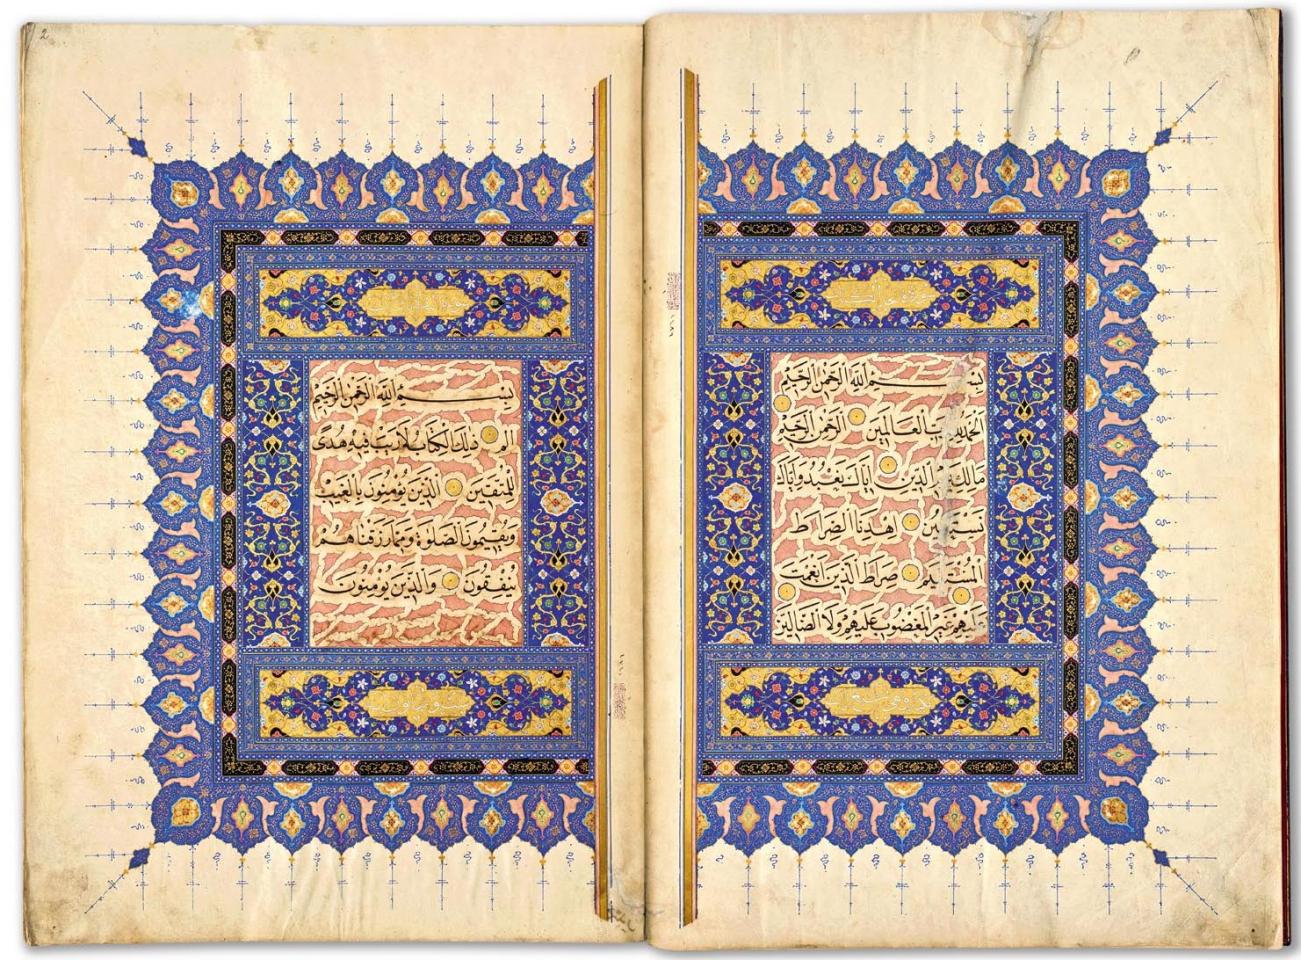 بسم الله الرحمن الرحيم
الحمد لله رب العالمين الرحمن الرحيم
مالك يوم الدين اياك نعبد واياك
نستعين اهدنا الصراط
المستقيم صراط الذين انعمت
عليهم غير المغضوب عليهم ولا الضالين
2
بسم الله الرحمن الرحيم
الم ذلك الكتاب لا ريب فيه هدى
للمتقين الذين يؤمنون بالغيب
ويقيمون الصلوة ومما رزقناهم
ينفقون والذين يؤمنون